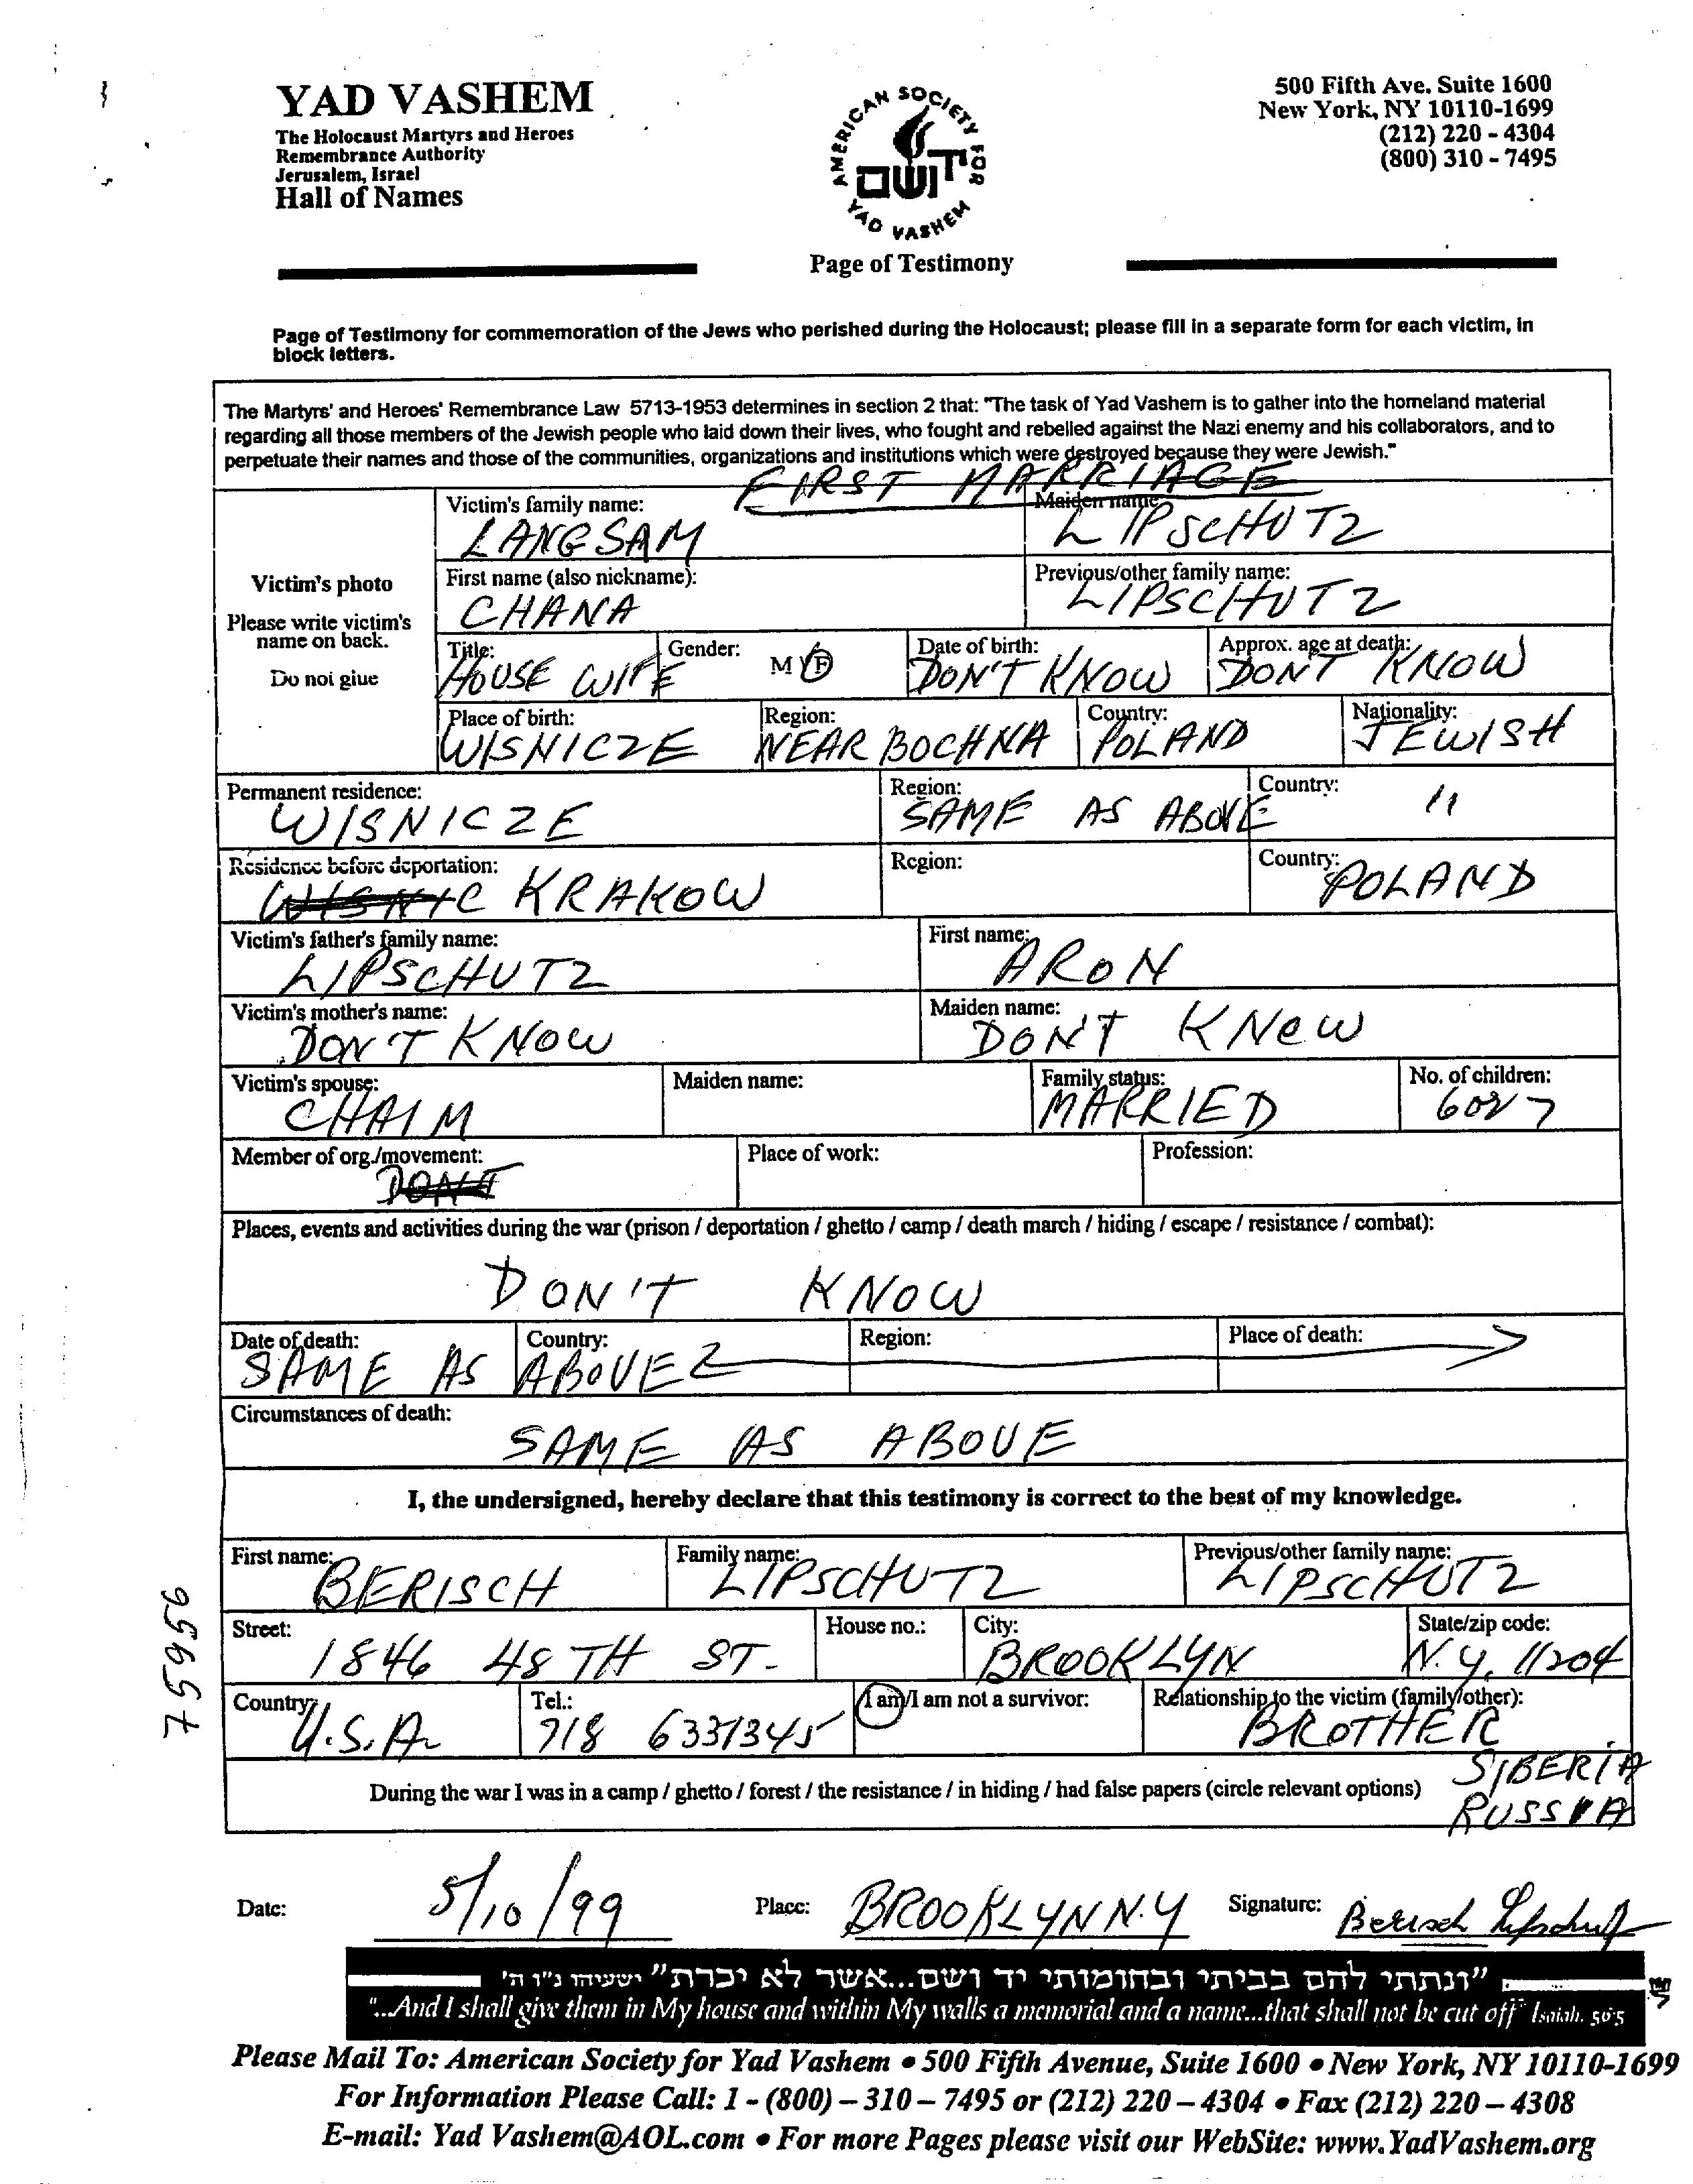 YAD VASHEM
The Holocaust Martyrs and Heroes
Remembrance Authority
Jerusalem, Israel
Hall of Names
AMERICAN SOCIETY FOR
יד ושם
YAD VASHEM
Page of Testimony
500 Fifth Ave. Suite 1600
New York, NY 10110-1699
(212) 220 - 4304
(800) 310 - 7495
Page of Testimony for commemoration of the Jews who perished during the Holocaust; please fill in a separate form for each victim, in
block letters.
The Martyrs' and Heroes' Remembrance Law 5713-1953 determines in section 2 that: "The task of Yad Vashem is to gather into the homeland material
regarding all those members of the Jewish people who laid down their lives, who fought and rebelled against the Nazi enemy and his collaborators, and to
perpetuate their names and those of the communities, organizations and institutions which were destroyed because they were Jewish."
FIRST MARRIAGE
Victim's photo
Please write victim's
name on back.
Do not glue
Victim's family name: Maiden name:
LANGSAM LIPSCHUTZ
First name (also nickname): Previous/other family name:
CHANA LIPSCHUTZ
Title: Gender: M / F Date of birth: Approx. age at death:
HOUSE WIFE DON'T KNOW DONT KNOW
Place of birth: Region: Country: Nationality:
WISNICZE NEAR BOCHNA POLAND JEWISH
Permanent residence: Region: Country:
WISNICZE SAME AS ABOVE 11
Residence before deportation: Region: Country:
WISNIC KRAKOW POLAND
Victim's father's family name: First name:
LIPSCHUTZ ARON
Victim's mother's name: Maiden name:
DON'T KNOW DON'T KNOW
Victim's spouse: Maiden name: Family status: No. of children:
CHAIM MARRIED 6 or 7
Member of org./movement: Place of work: Profession:
DONT
Places, events and activities during the war (prison / deportation / ghetto / camp / death march / hiding / escape / resistance / combat):
DON'T KNOW
Date of death: Country: Region: Place of death:
SAME AS ABOVE
Circumstances of death:
SAME AS ABOVE
I, the undersigned, hereby declare that this testimony is correct to the best of my knowledge.
First name: Family name: Previous/other family name:
BERISCH LIPSCHUTZ LIPSCHUTZ
Street: House no.: City: State/zip code:
1846 48 TH ST. BROOKLYN N.Y. 11204
Country: Tel.: I am/I am not a survivor: Relationship to the victim (family/other):
U.S.A. 718 6331345 BROTHER
During the war I was in a camp / ghetto / forest / the resistance / in hiding / had false papers (circle relevant options)
SIBERIA
RUSSIA
75956
Date: 5/10/99 Place: BROOKLYN N.Y Signature: Berisch Lipschutz
"ונתתי להם בביתי ובחומותי יד ושם...אשר לא יכרת" ישעיהו נ"ו ה'
"...And I shall give them in My house and within My walls a memorial and a name...that shall not be cut off" Isaiah. 56:5
Please Mail To: American Society for Yad Vashem • 500 Fifth Avenue, Suite 1600 • New York, NY 10110-1699
For Information Please Call: 1 - (800) – 310 – 7495 or (212) 220 – 4304 • Fax (212) 220 – 4308
E-mail: Yad Vashem@AOL.com • For more Pages please visit our WebSite: www.YadVashem.org